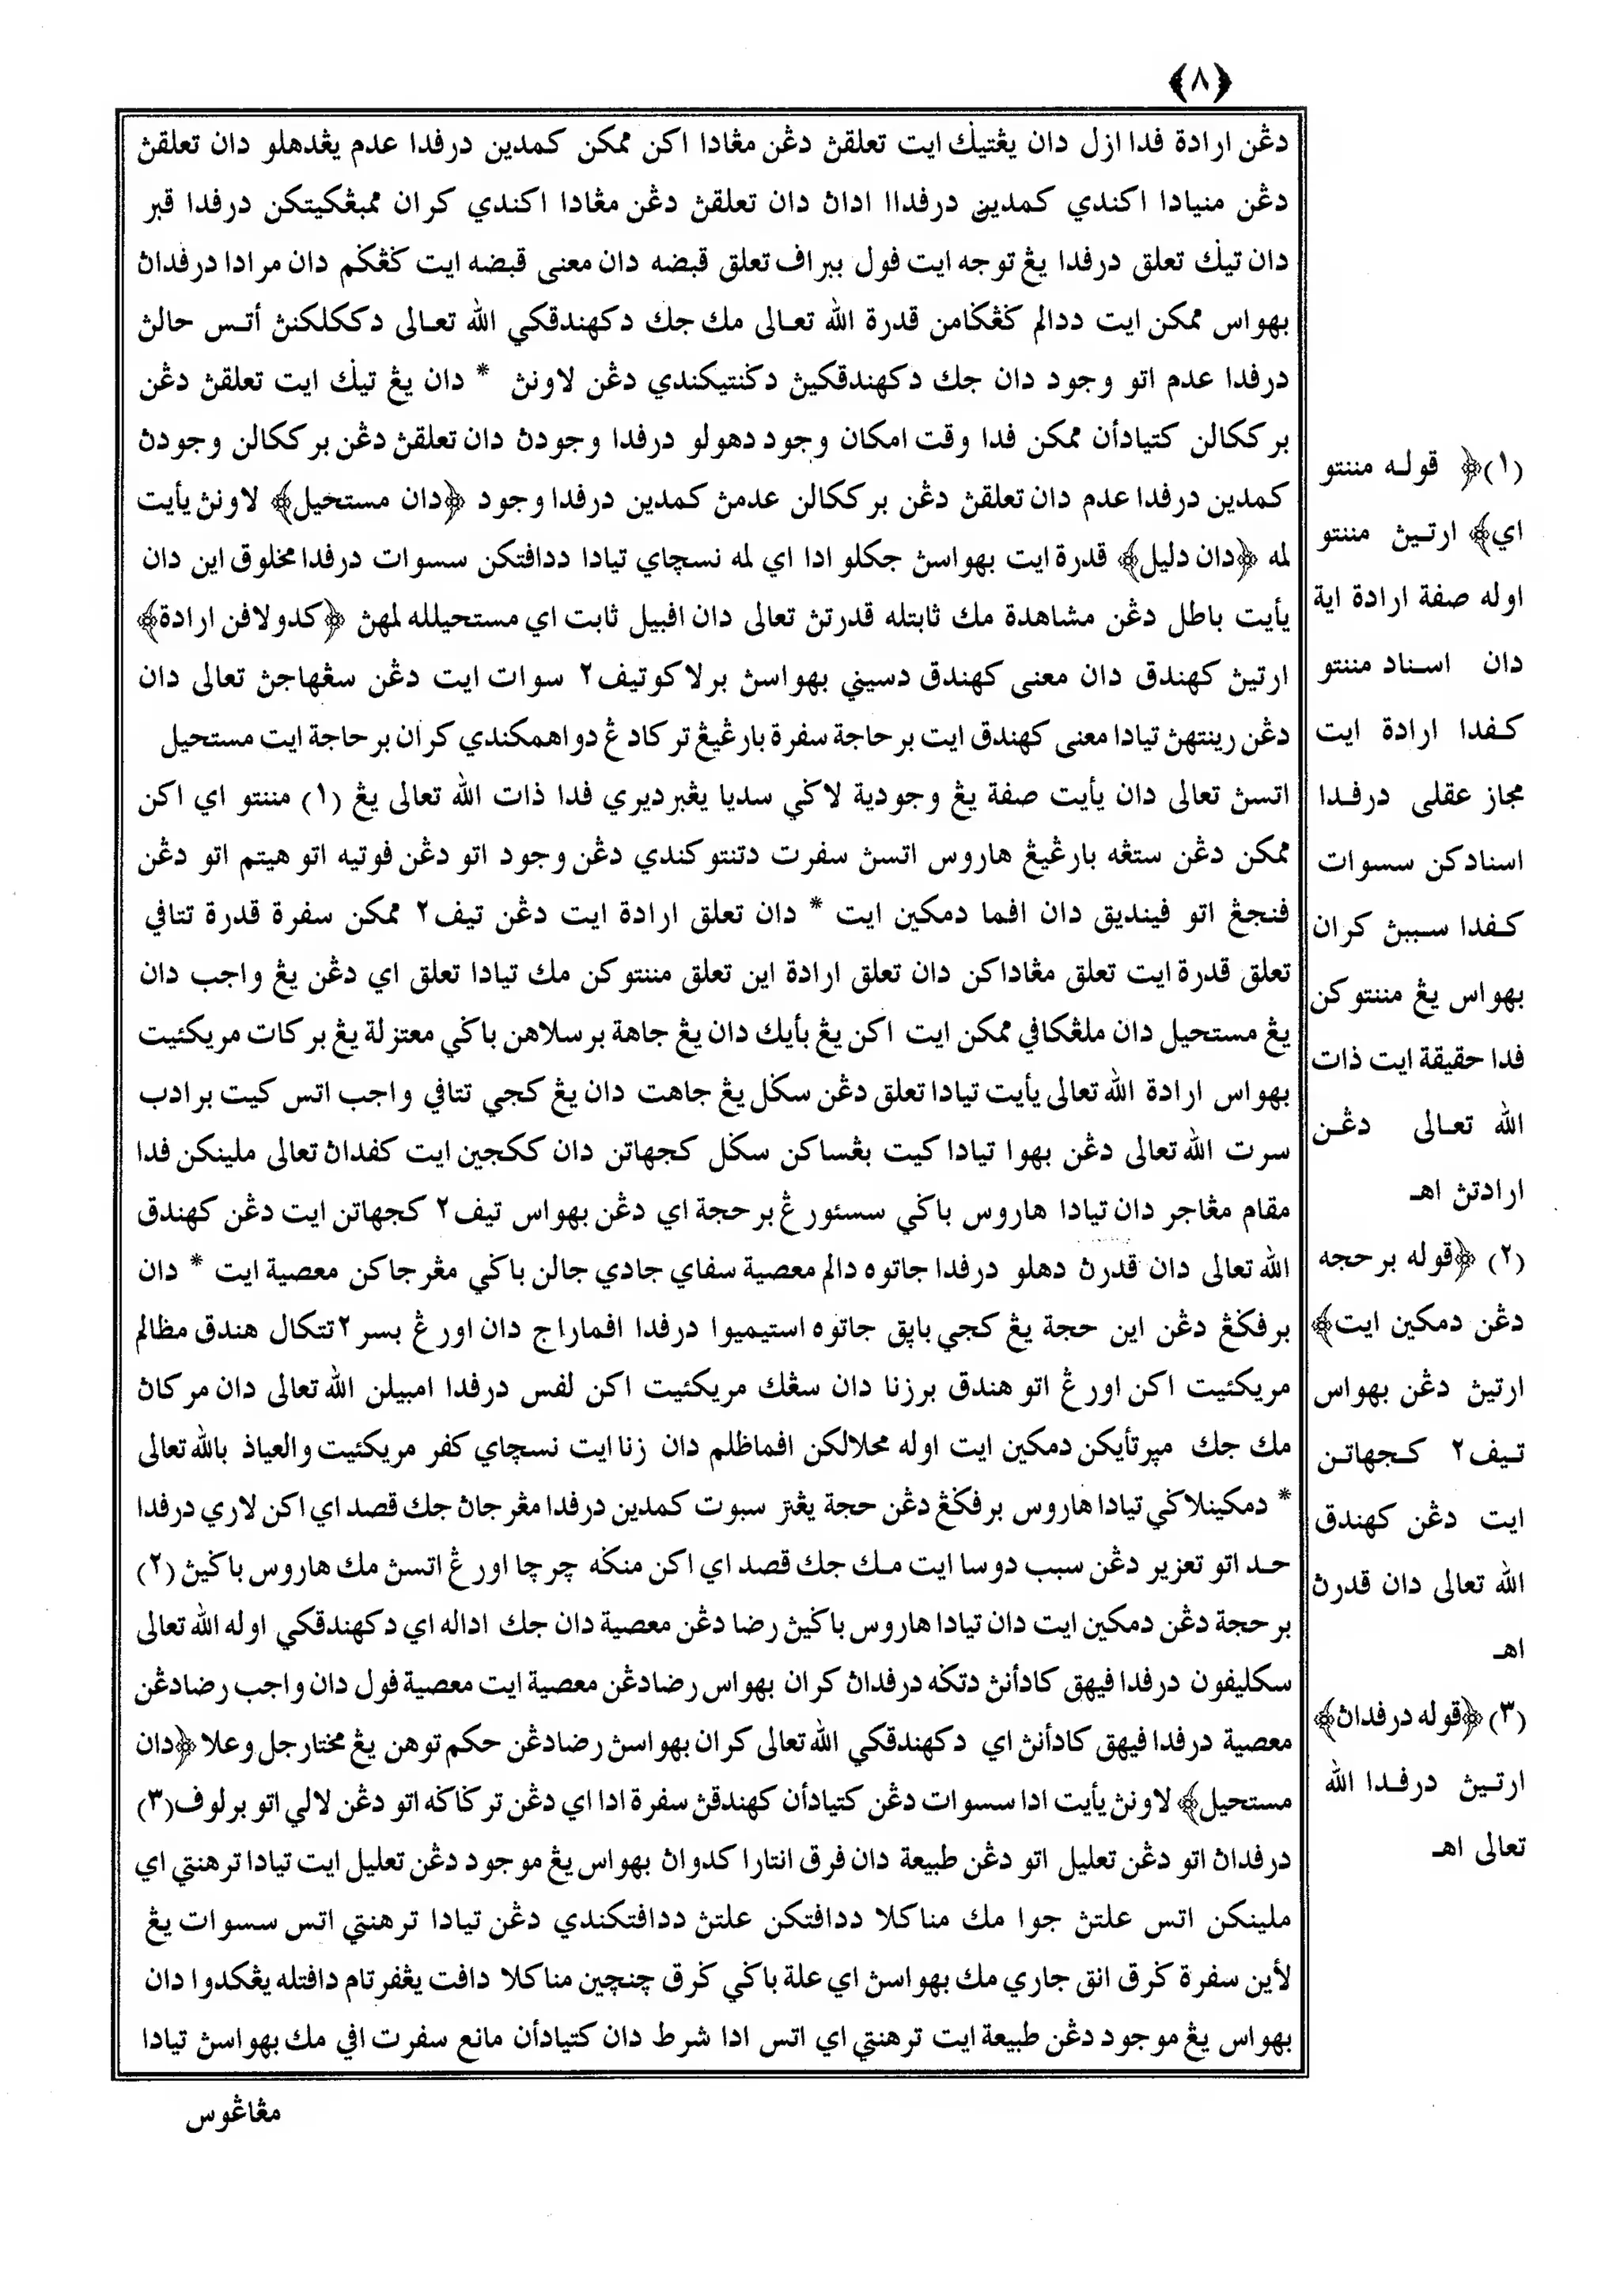 ﴿٨﴾
دڠن ارادة فدا ازل دان يڠتيݢ ايت تعلقڽ دڠن مڠادا اكن ممكن كمدين درفدا عدم يڠدهلو دان تعلقڽ
دڠن منيادا اكندي كمدين درفداا اداڽ دان تعلقڽ دڠن مڠادا اكندي كران ممبڠكيتكن درفدا قبر
دان تيݢ تعلق درفدا يڠ توجه ايت فول ببراف تعلق قبضه دان معنى قبضه ايت كڠݢم دان مرادا درفداڽ
بهواس ممكن ايت ددالم كڠݢامن قدرة الله تعالى مك جك دكهندقكي الله تعالى دككلكنڽ أتس حالڽ
درفدا عدم اتو وجود دان جك دكهندقكيڽ دݢنتيكندي دڠن لاونڽ * دان يڠ تيݢ ايت تعلقڽ دڠن
بركکالن كتيادأن ممكن فدا وقت امكان وجود دهولو درفدا وجودڽ دان تعلقڽ دڠن بركکالن وجودڽ
كمدين درفدا عدم دان تعلقڽ دڠن بركکالن عدمڽ كمدين درفدا وجود ﴿دان مستحيل﴾ لاونڽ يأيت
لمه ﴿دان دليل﴾ قدرة ايت بهواسڽ جكلو ادا اي لمه نسچاي تيادا ددافتكن سسوات درفدا مخلوق اين دان
يأيت باطل دڠن مشاهدة مك ثابتله قدرتڽ تعالى دان افبيل ثابت اي مستحيلله لمهڽ ﴿كدولافن ارادة﴾
ارتيڽ كهندق دان معنى كهندق دسيني بهواسڽ برلاكو تيف٢ سوات ايت دڠن سڠهاجڽ تعالى دان
دڠن رينتهڽ تيادا معنى كهندق ايت برحاجة سفرة بارڠيڠ تركادڠ دواهمكندي كران برحاجة ايت مستحيل
اتسڽ تعالى دان يأيت صفة يڠ وجودية لاݢي سديا يڠبرديري فدا ذات الله تعالى يڠ (١) مننتو اي اكن
ممكن دڠن ستڠه بارڠيڠ هاروس اتسڽ سفرت دتنتوكندي دڠن وجود اتو دڠن فوتيه اتو هيتم اتو دڠن
فنجڠ اتو فينديق دان افما دمكين ايت * دان تعلق ارادة ايت دڠن تيف٢ ممكن سفرة قدرة تتافي
تعلق قدرة ايت تعلق مڠاداكن دان تعلق ارادة اين تعلق مننتوكن مك تيادا تعلق اي دڠن يڠ واجب دان
يڠ مستحيل دان ملڠكافي ممكن ايت اكن يڠ بأيك دان يڠ جاهة برسلاهن باݢي معتزلة يڠ بركات مريكئيت
بهواس ارادة الله تعالى يأيت تيادا تعلق دڠن سݢل يڠ جاهت دان يڠ كجي تتافي واجب اتس كيت برادب
سرت الله تعالى دڠن بهوا تيادا كيت بڠساكن سݢل كجهاتن دان ككجين ايت كفداڽ تعالى ملينكن فدا
مقام مڠاجر دان تيادا هاروس باݢي سسئورڠ برحجة اي دڠن بهواس تيف٢ كجهاتن ايت دڠن كهندق
الله تعالى دان قدرڽ دهلو درفدا جاتوه دالم معصية سفاي جادي جالن باݢي مڠرجاكن معصية ايت * دان
برفݢڠ دڠن اين حجة يڠ كجي باپق جاتوه استيميوا درفدا افماراج دان اورڠ بسر٢ تتكال هندق مظالم
مريكئيت اكن اورڠ اتو هندق برزنا دان سڠك مريكئيت اكن لفس درفدا امبيلن الله تعالى دان مركاڽ
مك جك مپرتأيكن دمكين ايت اوله محلالكن افماظلم دان زنا ايت نسچاي كفر مريكئيت والعياذ بالله تعالى
* دمكينلاݢي تيادا هاروس برفݢڠ دڠن حجة يڠتر سبوت كمدين درفدا مڠرجاڽ جك قصد اي اكن لاري درفدا
حد اتو تعزير دڠن سبب دوسا ايت مك جك قصد اي اكن منݢه چرچا اورڠ اتسڽ مك هاروس باݢيڽ (٢)
برحجة دڠن دمكين ايت دان تيادا هاروس باݢيڽ رضا دڠن معصية دان جك اداله اي دكهندقكي اوله الله تعالى
سكليفون درفدا فيهق كادأنڽ دتݢه درفداڽ كران بهواس رضادڠن معصية ايت معصية فول دان واجب رضادڠن
معصية درفدا فيهق كادأنڽ اي دكهندقكي الله تعالى كران بهواسڽ رضادڠن حكم توهن يڠ مختار جل وعلا ﴿دان
مستحيل﴾ لاونڽ يأيت ادا سسوات دڠن كتيادأن كهندقڽ سفرة ادا اي دڠن تركاݢه اتو دڠن لالي اتو برلوف (٣)
درفداڽ اتو دڠن تعليل اتو دڠن طبيعة دان فرق انتارا كدواڽ بهواس يڠ موجود دڠن تعليل ايت تيادا ترهنتي اي
ملينكن اتس علتڽ جوا مك مناكلا ددافتكن علتڽ ددافتكندي دڠن تيادا ترهنتي اتس سسوات يڠ
لأين سفرة ݢرق انق جاري مك بهواسڽ اي علة باݢي ݢرق چنچين مناكلا دافت يڠفرتام دافتله يڠكدوا دان
بهواس يڠ موجود دڠن طبيعة ايت ترهنتي اي اتس ادا شرط دان كتيادأن مانع سفرت افي مك بهواسڽ تيادا
مڠاڠوس
(١) ﴿ قوله مننتو
اي﴾ ارتيڽ مننتو
اوله صفة ارادة اية
دان اسناد مننتو
كفدا ارادة ايت
مجاز عقلى درفدا
اسنادكن سسوات
كفدا سببڽ كران
بهواس يڠ مننتوكن
فدا حقيقة ايت ذات
الله تعالى دڠن
ارادتڽ اهـ
(٢) ﴿قوله برحجه
دڠن دمكين ايت﴾
ارتيڽ دڠن بهواس
تيف٢ كجهاتن
ايت دڠن كهندق
الله تعالى دان قدرڽ
اهـ
(٣) ﴿قوله درفداڽ﴾
ارتيڽ درفدا الله
تعالى اهـ